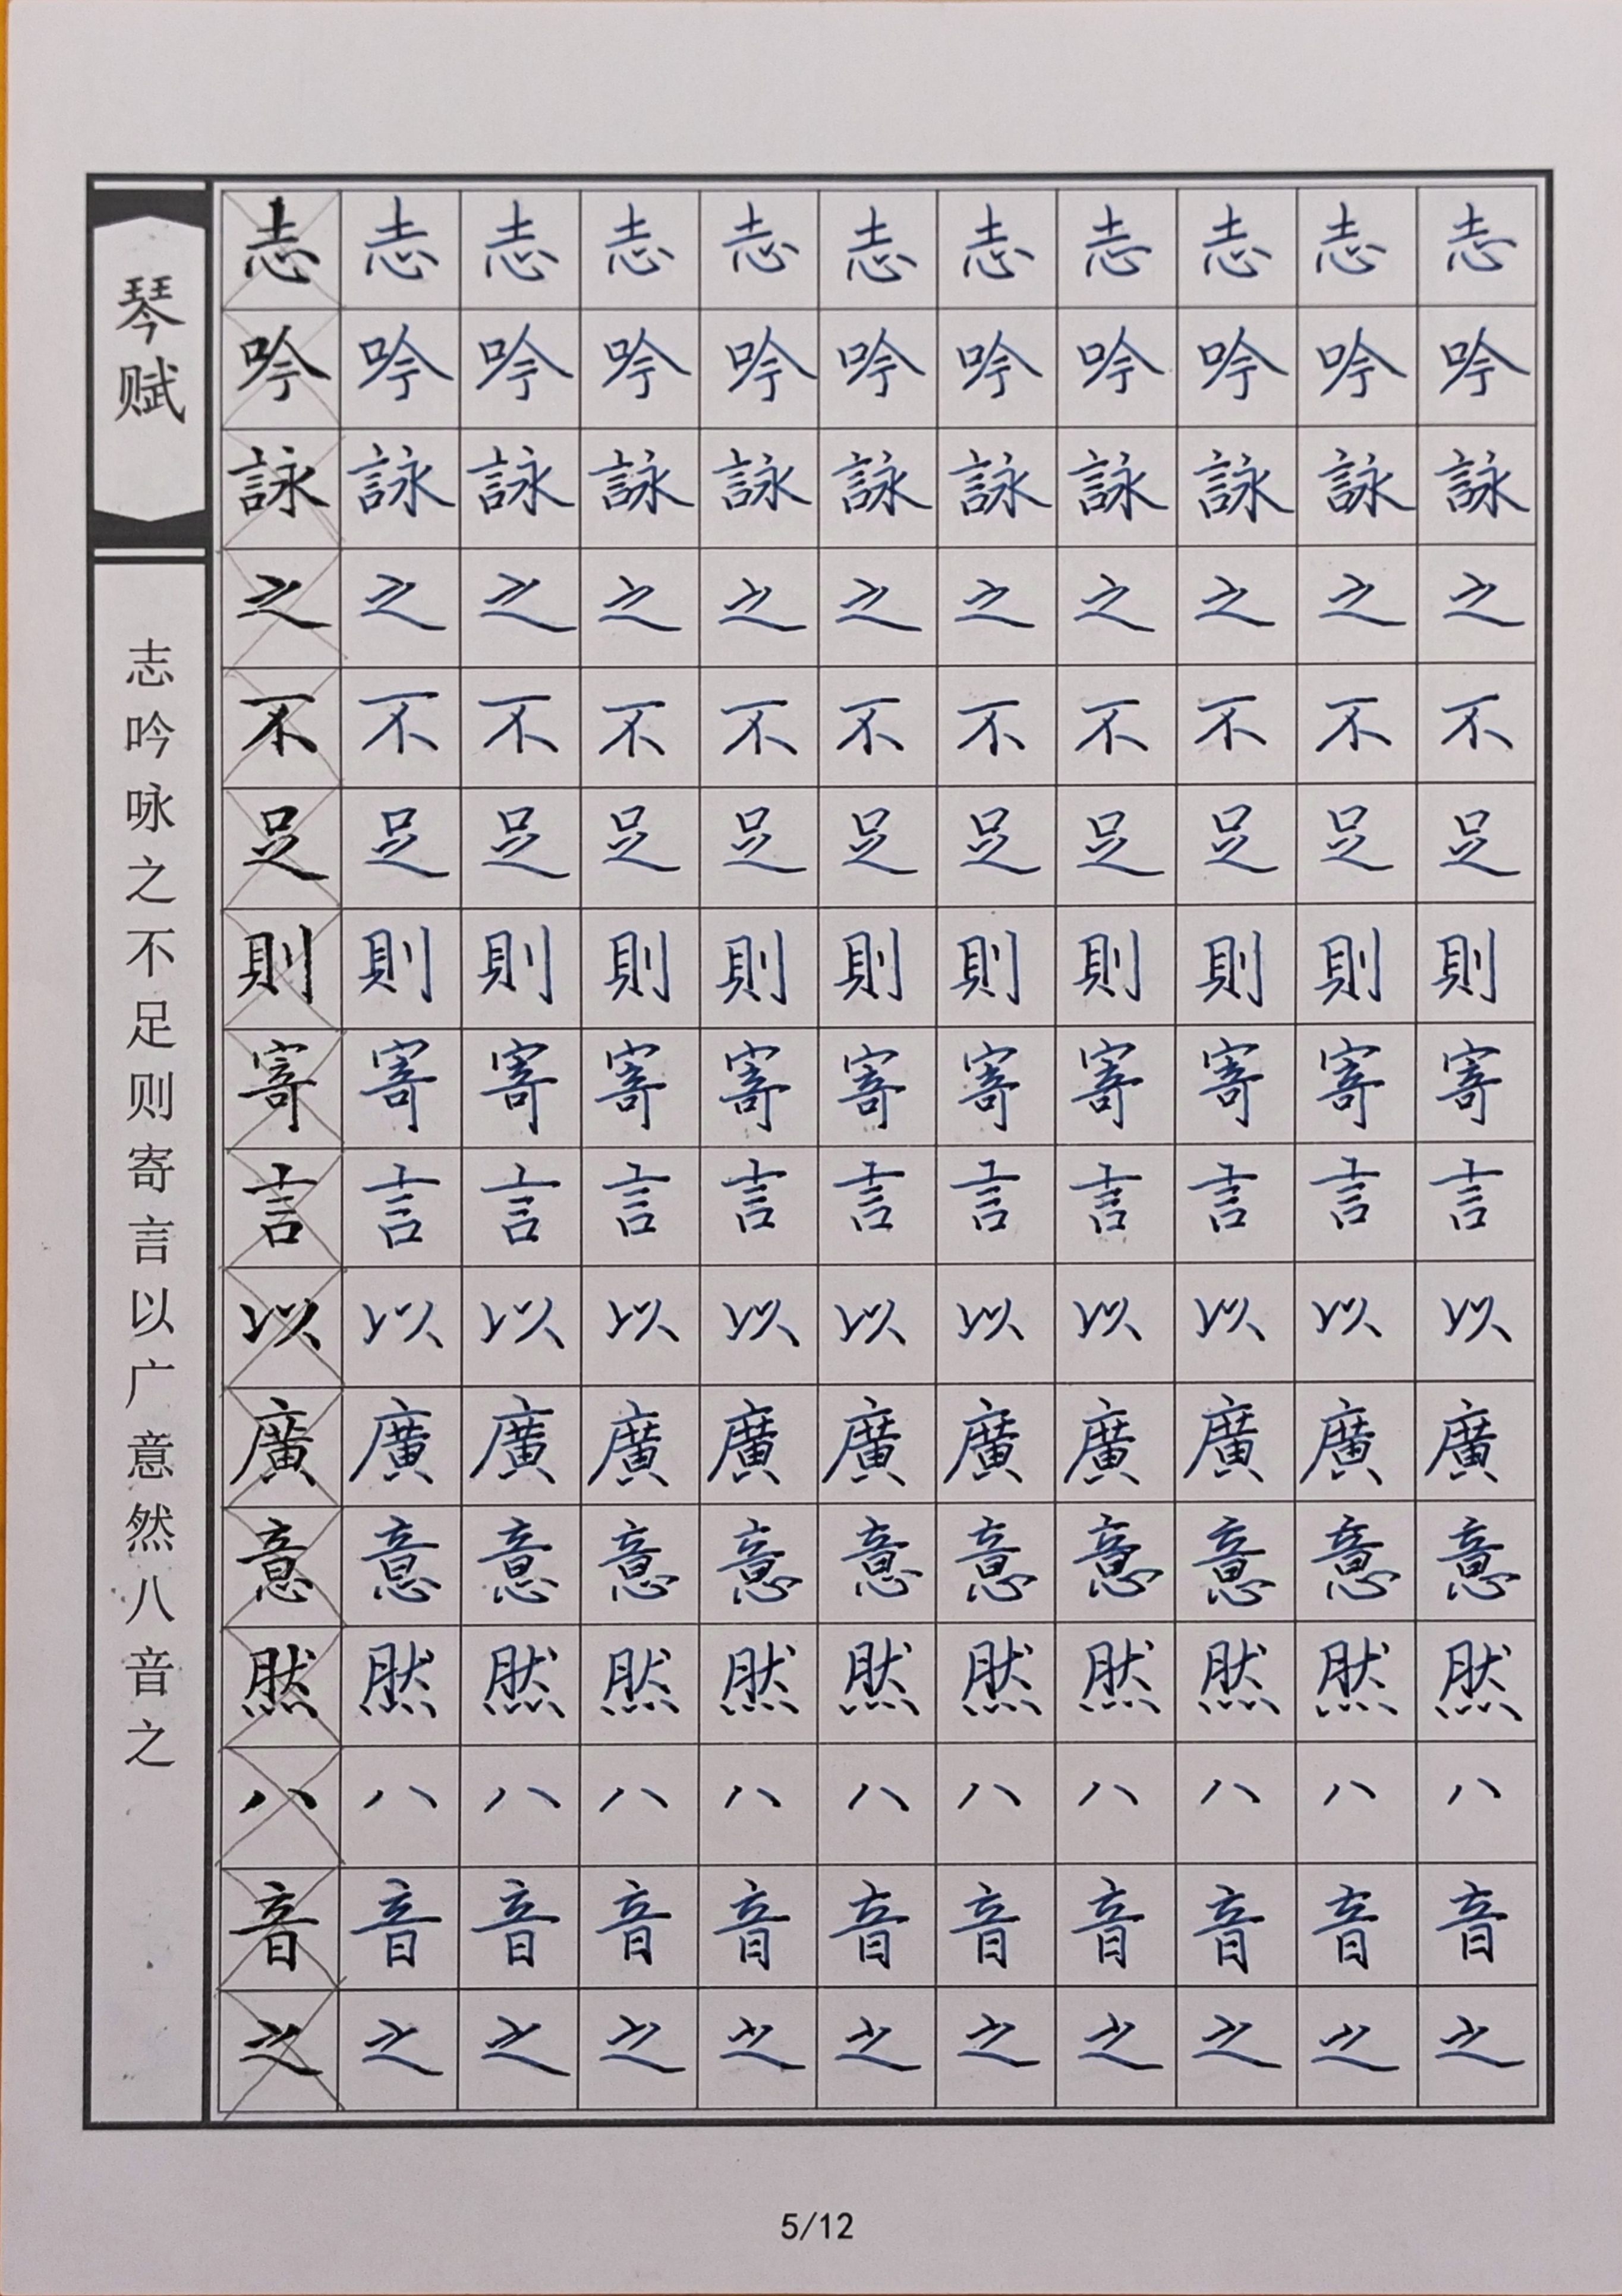 琴赋
志吟咏之不足则寄言以广意然八音之
志志志志志志志志志志志
吟吟吟吟吟吟吟吟吟吟吟
詠詠詠詠詠詠詠詠詠詠詠
之之之之之之之之之之之
不不不不不不不不不不不
足足足足足足足足足足足
則則則則則則則則則則則
寄寄寄寄寄寄寄寄寄寄寄
言言言言言言言言言言言
以以以以以以以以以以以
廣廣廣廣廣廣廣廣廣廣廣
意意意意意意意意意意意
然然然然然然然然然然然
八八八八八八八八八八八
音音音音音音音音音音音
之之之之之之之之之之之
5/12